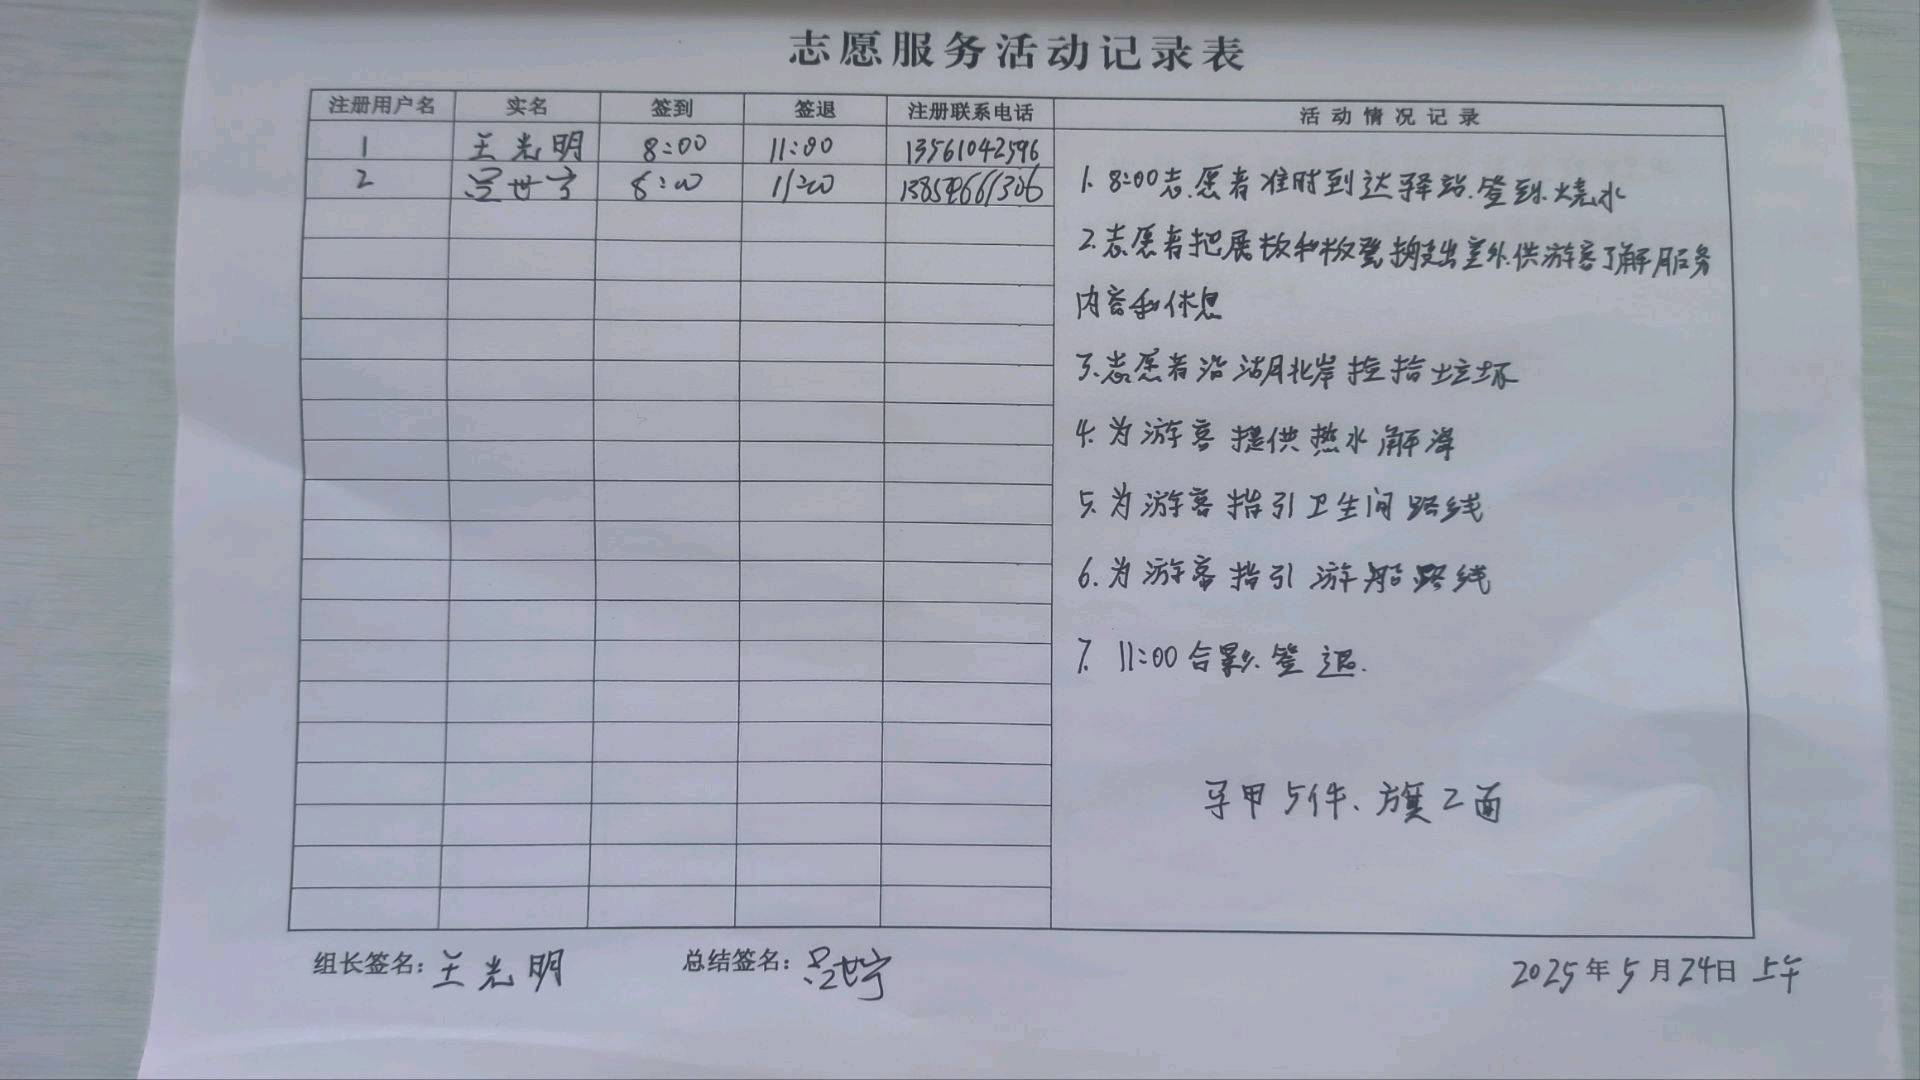 志愿服务活动记录表
注册用户名 实名 签到 签退 注册联系电话 活动情况记录
1 王光明 8:00 11:00 13561042596
2 吕世宁 8:00 11:00
1. 8:00志愿者准时到达驿站.签到.烧水
2.志愿者把展板和板凳搬出室外.供游客了解服务
内容和休息
3.志愿者沿湖北岸捡拾垃圾
4.为游客提供热水解渴
5.为游客指引卫生间路线
6.为游客指引游船路线
7. 11:00合影.签退.
马甲5件、旗2面
组长签名:王光明 总结签名:吕世宁 2025年5月24日上午